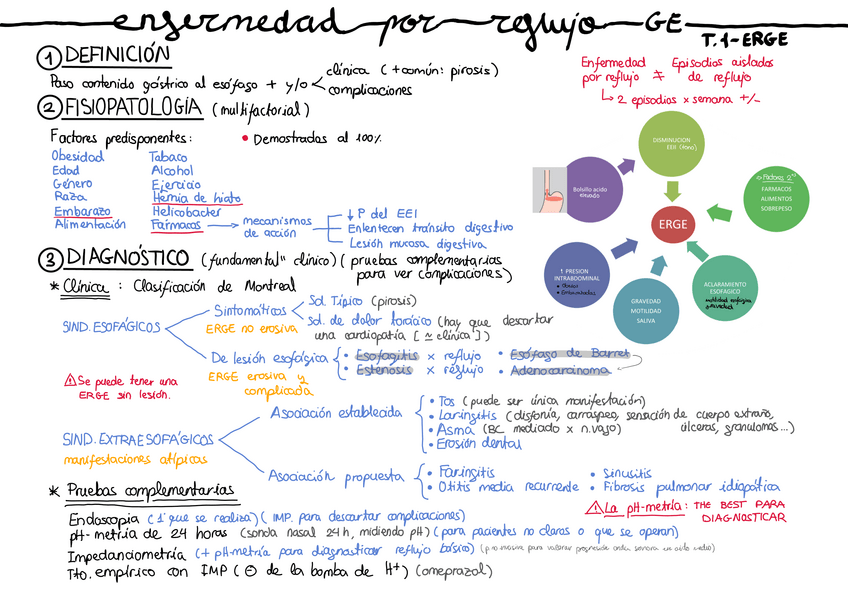 enfermedad por reflujo GE
T.1-ERGE
① DEFINICIÓN
Paso contenido gástrico al esófago + y/o < clínica (+común: pirosis)
complicaciones
Enfermedad por reflujo ≠ Episodios aislados de reflujo
↳ 2 episodios x semana +/-
② FISIOPATOLOGÍA (multifactorial)
Factores predisponentes: • Demostrados al 100%
Obesidad Tabaco
Edad Alcohol
Género Ejercicio
Raza Hernia de hiato
Embarazo Helicobacter
Alimentación Fármacos → mecanismos de acción
↓ P del EEI
Enlentecen tránsito digestivo
Lesión mucosa digestiva
DISMINUCION
EEII (tono)
Bolsillo acido
rosado
Factores 2ºs
FARMACOS
ALIMENTOS
SOBREPESO
ERGE
↑ PRESION
INTRABDOMINAL
• Obesos
• Embarazadas
GRAVEDAD
MOTILIDAD
SALIVA
ACLARAMIENTO
ESOFAGICO
motilidad esofágica
gravedad
③ DIAGNÓSTICO (fundamental" clínico) (pruebas complementarias
para ver complicaciones)
* Clínica : Clasificación de Montreal
SIND. ESOFÁGICOS
Sintomáticos
ERGE no erosiva
Sd. Típico (pirosis)
Sd. de dolor torácico (hay que descartar
una cardiopatía [≃ clínica])
De lesión esofágica
ERGE erosiva y
complicada
• Esofagitis x reflujo • Esófago de Barret
• Estenosis x reflujo • Adenocarcinoma
⚠ Se puede tener una
ERGE sin lesión.
SIND. EXTRAESOFÁGICOS
manifestaciones atípicas
Asociación establecida
• Tos (puede ser única manifestación)
• Laringitis (disfonía, carraspeo, sensación de cuerpo extraño,
úlceras, granulomas...)
• Asma (BC mediado x n.vago)
• Erosión dental
Asociación propuesta
• Faringitis • Sinusitis
• Otitis media recurrente • Fibrosis pulmonar idiopática
* Pruebas complementarias
⚠ La pH-metría: THE BEST PARA
DIAGNOSTICAR
Endoscopia (1ª que se realiza) (IMP. para descartar complicaciones)
pH-metria de 24 horas (sonda nasal 24h, midiendo pH) (para pacientes no claros o que se operan)
Impedanciometría (+ pH-metría para diagnosticar reflujo básico)
Tto. empírico con IMP (⊖ de la bomba de H+) (omeprazol)